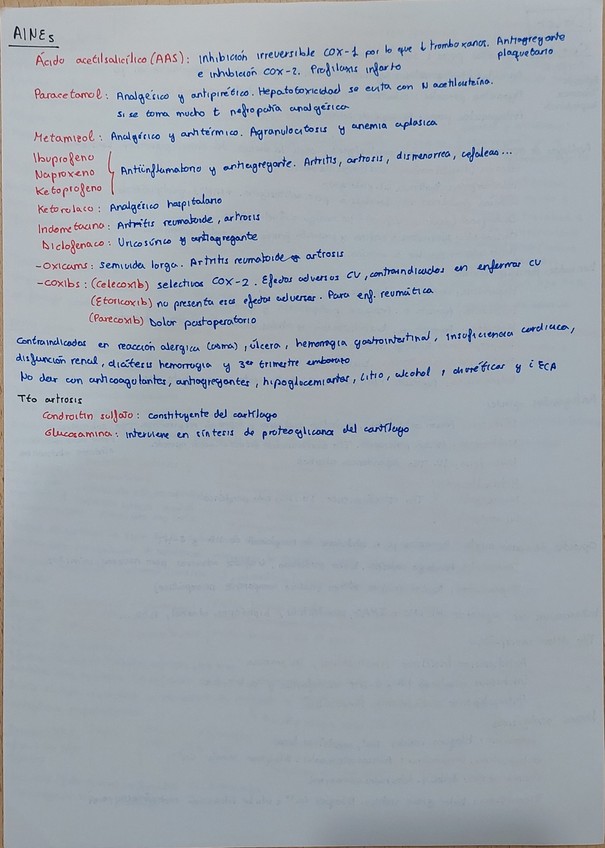 AINEs
Ácido acetilsalicílico (AAS): Inhibición irreversible COX-1 por lo que ↓ tromboxanos. Antiagregante plaquetario
e inhibición COX-2. Profilaxis infarto
Paracetamol: Analgésico y antipirético. Hepatotoxicidad se evita con N acetilcisteína.
Si se toma mucho t nefropatía analgésica
Metamizol: Analgésico y antitérmico. Agranulocitosis y anemia aplásica
Ibuprofeno
Naproxeno
Ketoprofeno
Antiinflamatorio y antiagregante. Artritis, artrosis, dismenorrea, cefaleas...
Ketorolaco: Analgésico hospitalario
Indometacina: Artritis reumatoide, artrosis
Diclofenaco: Uricosúrico y antiagregante
-Oxicams: semivida larga. Artritis reumatoide artrosis
-COXIBS: (Celecoxib) selectivos COX-2. Efectos adversos CV, contraindicados en enfermos CV
(Etoricoxib) no presenta esos efectos adversos. Para enf. reumática
(Parecoxib) Dolor postoperatorio
Contraindicados en reacción alérgica (asma), úlcera, hemorragia gastrointestinal, insuficiencia cardiaca,
disfunción renal, diátesis hemorragia y 3er trimestre embarazo
No dar con anticoagulantes, antiagregantes, hipoglucemiantes, litio, alcohol, diuréticos y i ECA
Tto artrosis
Condroitin sulfato: constituyente del cartílago
Glucosamina: interviene en síntesis de proteoglicanos del cartílago